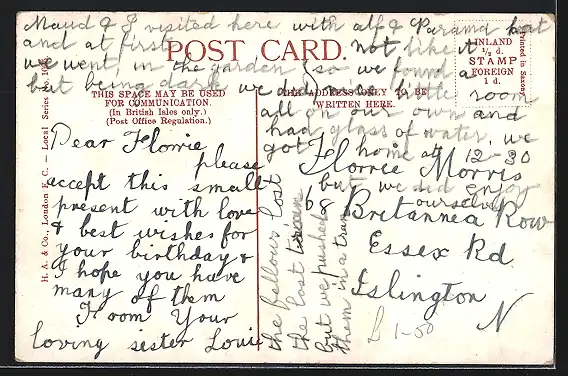 Maud & I visited here with alf & Parama but
and at first not like it
we went in the garden so we found a
but being dark we had
room
all on our own and
had glass of water, we
got home at 12-30
but we did enjoy
ourselves
POST CARD.
THIS SPACE MAY BE USED
FOR COMMUNICATION.
(In British Isles only.)
(Post Office Regulation.)
THE ADDRESS ONLY TO BE
WRITTEN HERE.
INLAND
½ d.
STAMP
FOREIGN
1 d.
Printed in Saxony.
H. A. & Co., London E. C. — Local Series No.
Dear Florrie
please
accept this small
present with love
& best wishes for
your birthday &
I hope you have
many of them
From Your
loving sister Louie
the fellows lost
the last train
but we pushed
them in a tram
Florree Morris
68 Britannea Row
Essex Rd
Islington
N
1-00